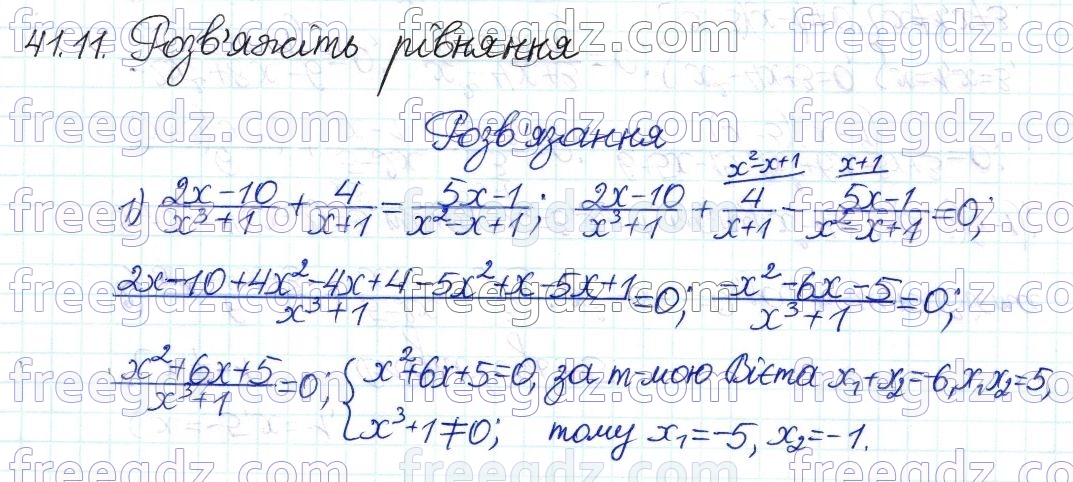 41.11. Розв'яжіть рівняння
Розв'язання
x²-x+1 x+1
1) (2x-10)/(x³+1) + 4/(x+1) = (5x-1)/(x²-x+1); (2x-10)/(x³+1) + 4/(x+1) - (5x-1)/(x²-x+1) = 0;
(2x-10+4x²-4x+4-5x²+x-5x+1)/(x³+1) = 0; (-x²-6x-5)/(x³+1) = 0;
(x²+6x+5)/(x³+1) = 0; { x²+6x+5=0, за т-мою Вієта x₁+x₂=-6, x₁x₂=5,
x³+1≠0; тому x₁=-5, x₂=-1.
freegdz.com